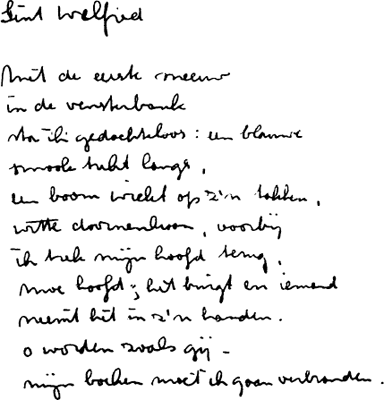 Sint Welfied
Met de eerste meeuw
in de vensterbank
sta ik gedachteloos: een blauwe
smoole trekt langs,
een boom wiekt op z'n takken,
witte doornenkroon, voorbij
ik trek mijn hoofd terug,
moe hoofd; het buigt en iemand
neemt het in z'n handen.
o worden zoals gij -
mijn boeken moet ik gaan verbranden.